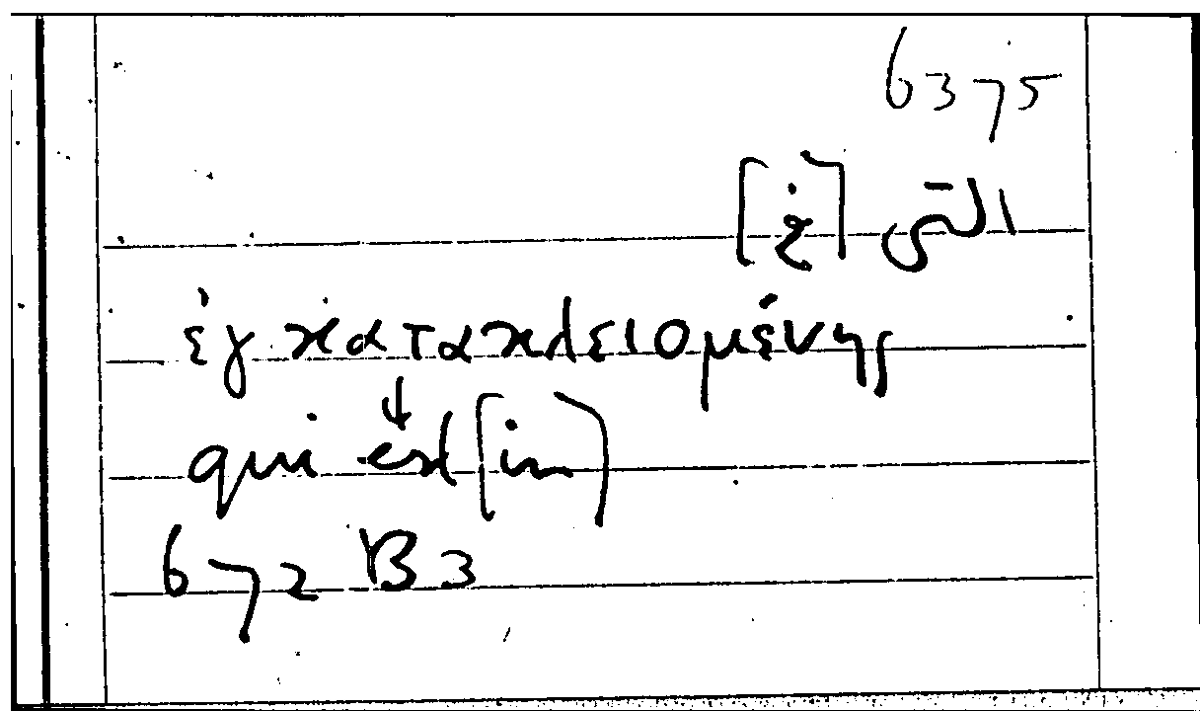 6375
ἐγκατακλειομένης
↓
qui est (in)
672 B3